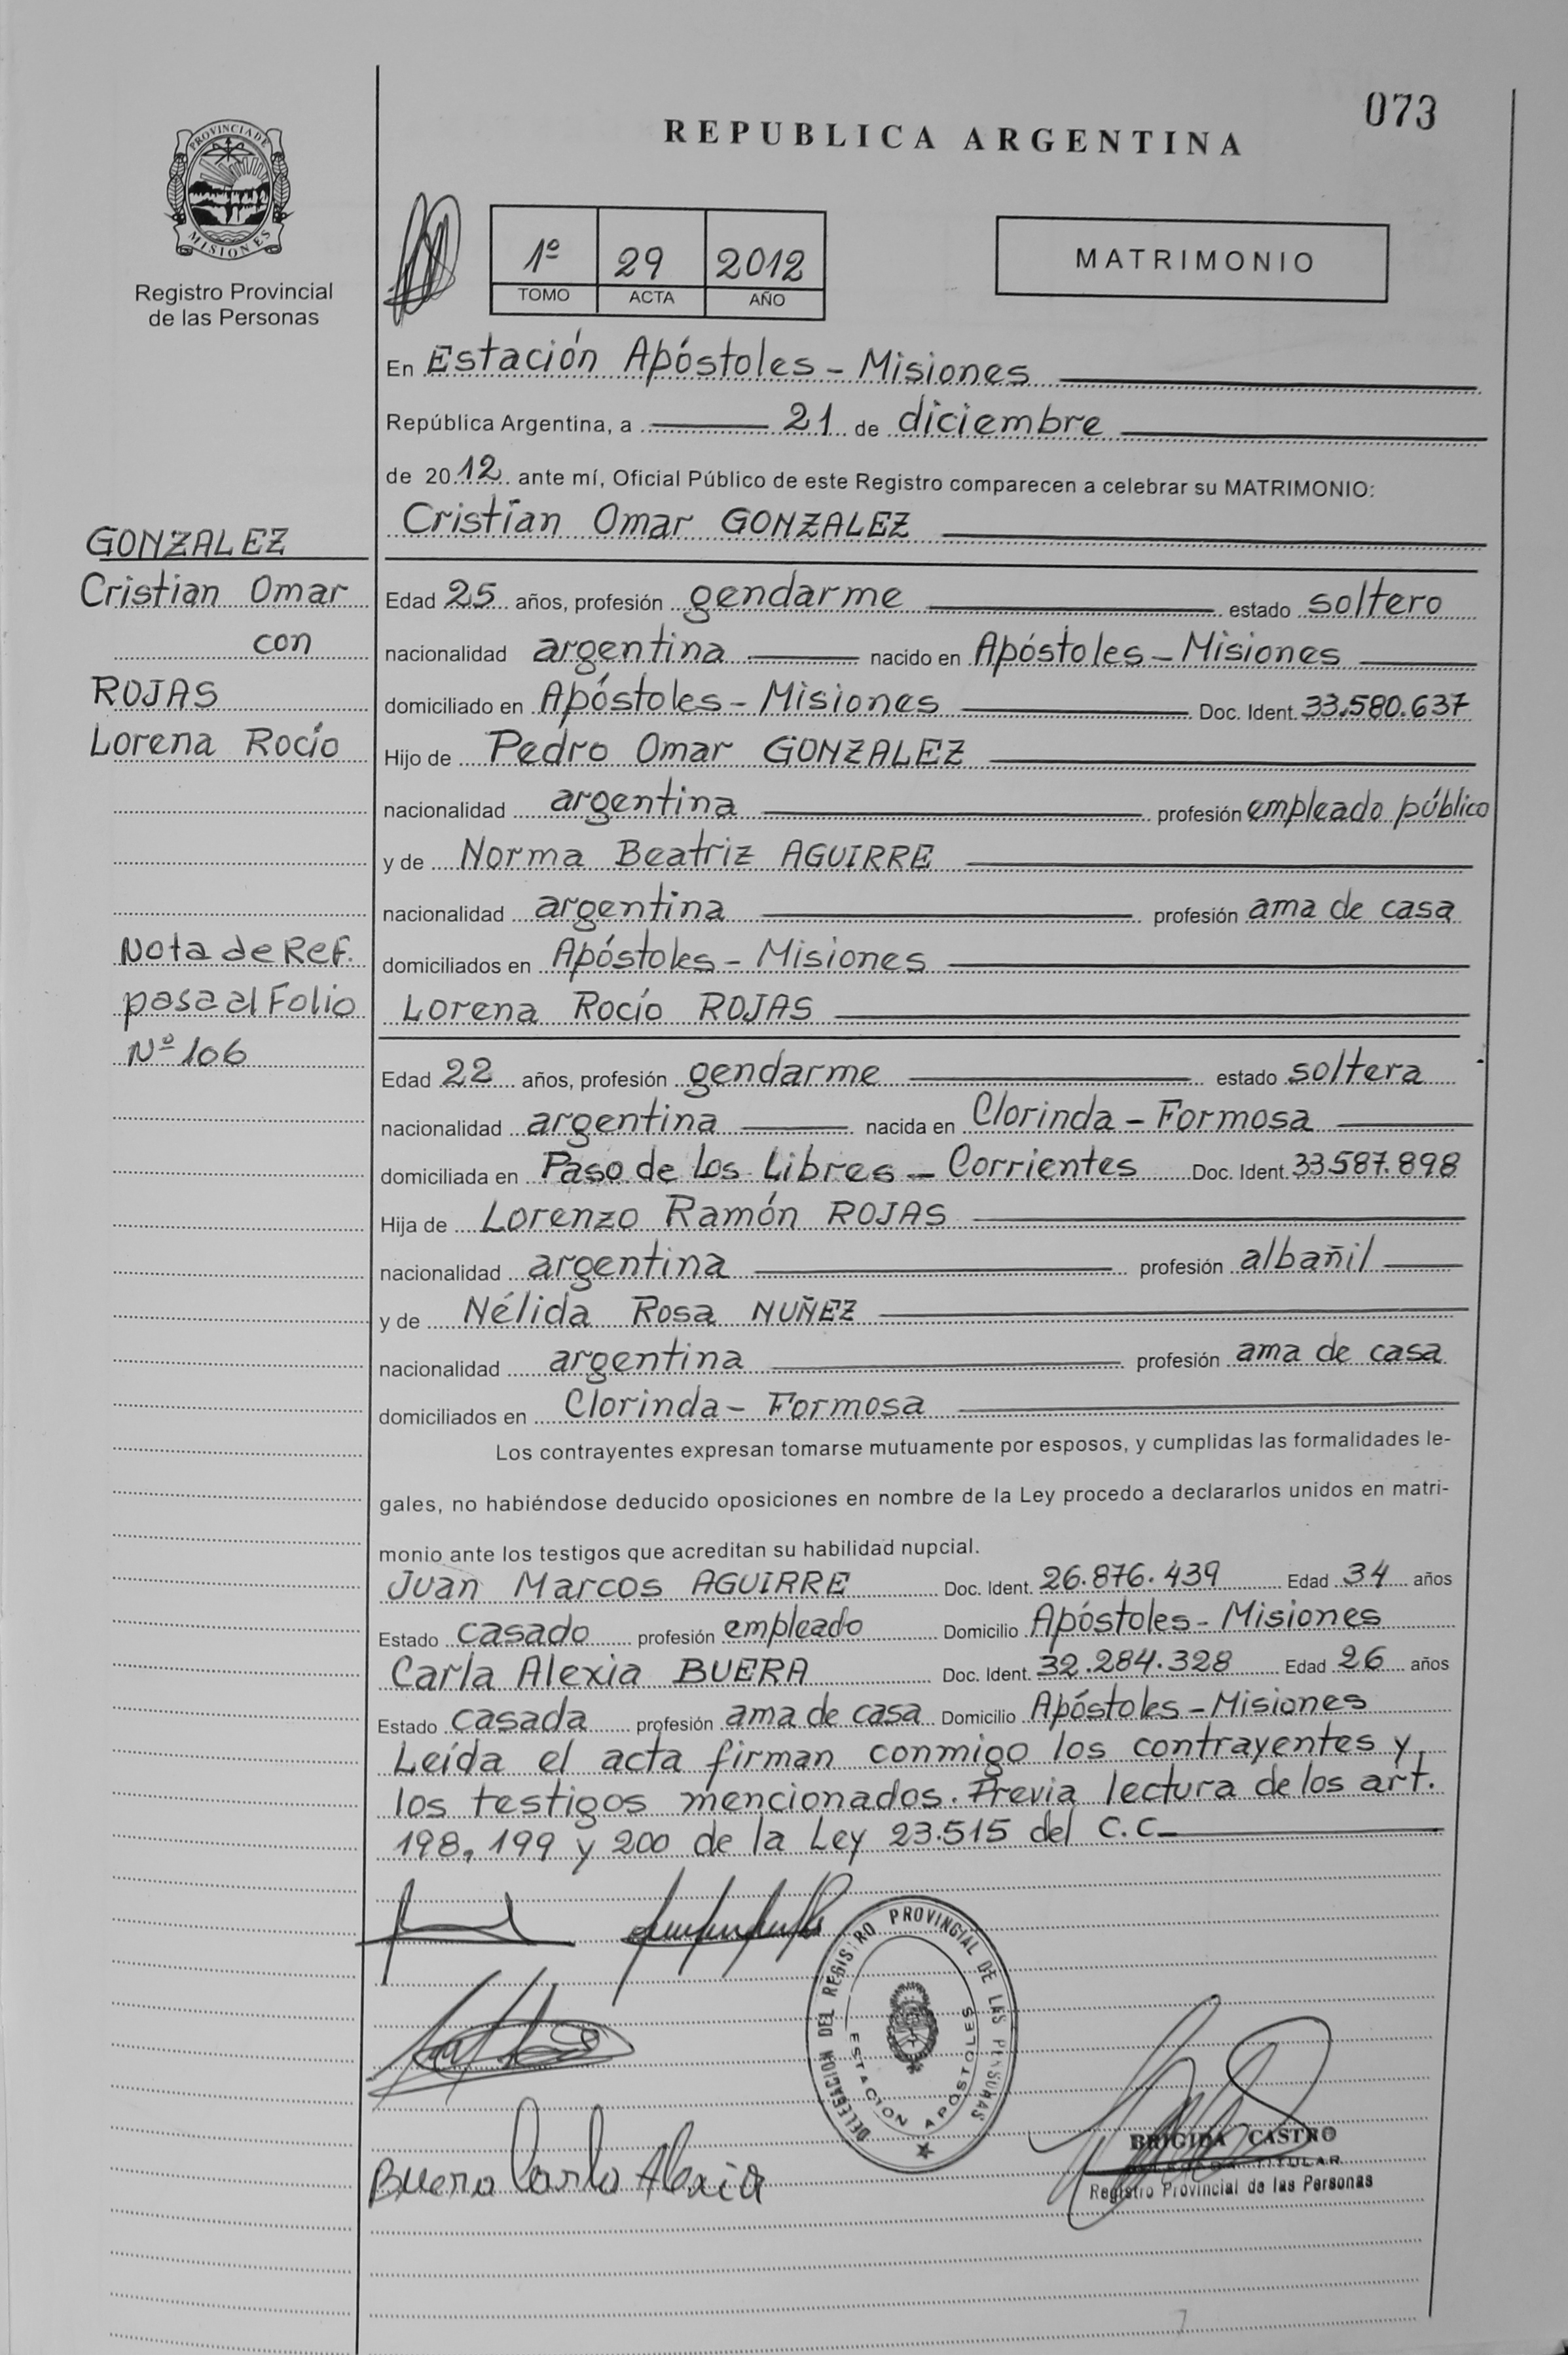 073
REPUBLICA ARGENTINA
PROVINCIA DE
MISIONES
Registro Provincial
de las Personas
1º 29 2012
TOMO ACTA AÑO
MATRIMONIO
En Estación Apóstoles - Misiones
República Argentina, a 21 de diciembre
de 2012 ante mí, Oficial Público de este Registro comparecen a celebrar su MATRIMONIO:
Cristian Omar GONZALEZ
GONZALEZ
Cristian Omar
con
ROJAS
Lorena Rocío
Edad 25 años, profesión gendarme estado soltero
nacionalidad argentina nacido en Apóstoles - Misiones
domiciliado en Apóstoles - Misiones Doc. Ident. 33.580.637
Hijo de Pedro Omar GONZALEZ
nacionalidad argentina profesión empleado público
y de Norma Beatriz AGUIRRE
nacionalidad argentina profesión ama de casa
domiciliados en Apóstoles - Misiones
Nota de Ref.
pasa al Folio
Nº 106
Lorena Rocío ROJAS
Edad 22 años, profesión gendarme estado soltera
nacionalidad argentina nacida en Clorinda - Formosa
domiciliada en Paso de los Libres - Corrientes Doc. Ident. 33.587.898
Hija de Lorenzo Ramón ROJAS
nacionalidad argentina profesión albañil
y de Nélida Rosa NUÑEZ
nacionalidad argentina profesión ama de casa
domiciliados en Clorinda - Formosa
Los contrayentes expresan tomarse mutuamente por esposos, y cumplidas las formalidades le-
gales, no habiéndose deducido oposiciones en nombre de la Ley procedo a declararlos unidos en matri-
monio ante los testigos que acreditan su habilidad nupcial.
Juan Marcos AGUIRRE Doc. Ident. 26.876.439 Edad 34 años
Estado casado profesión empleado Domicilio Apóstoles - Misiones
Carla Alexia BUERA Doc. Ident. 32.284.328 Edad 26 años
Estado casada profesión ama de casa Domicilio Apóstoles - Misiones
Leída el acta firman conmigo los contrayentes y
los testigos mencionados. Previa lectura de los art.
198, 199 y 200 de la Ley 23.515 del C.C.
DELEGACION DEL REGISTRO PROVINCIAL DE LAS PERSONAS
ESTACION APOSTOLES
Buera Carla Alexia
BRIGIDA CASTRO
DELEGADA TITULAR
Registro Provincial de las Personas